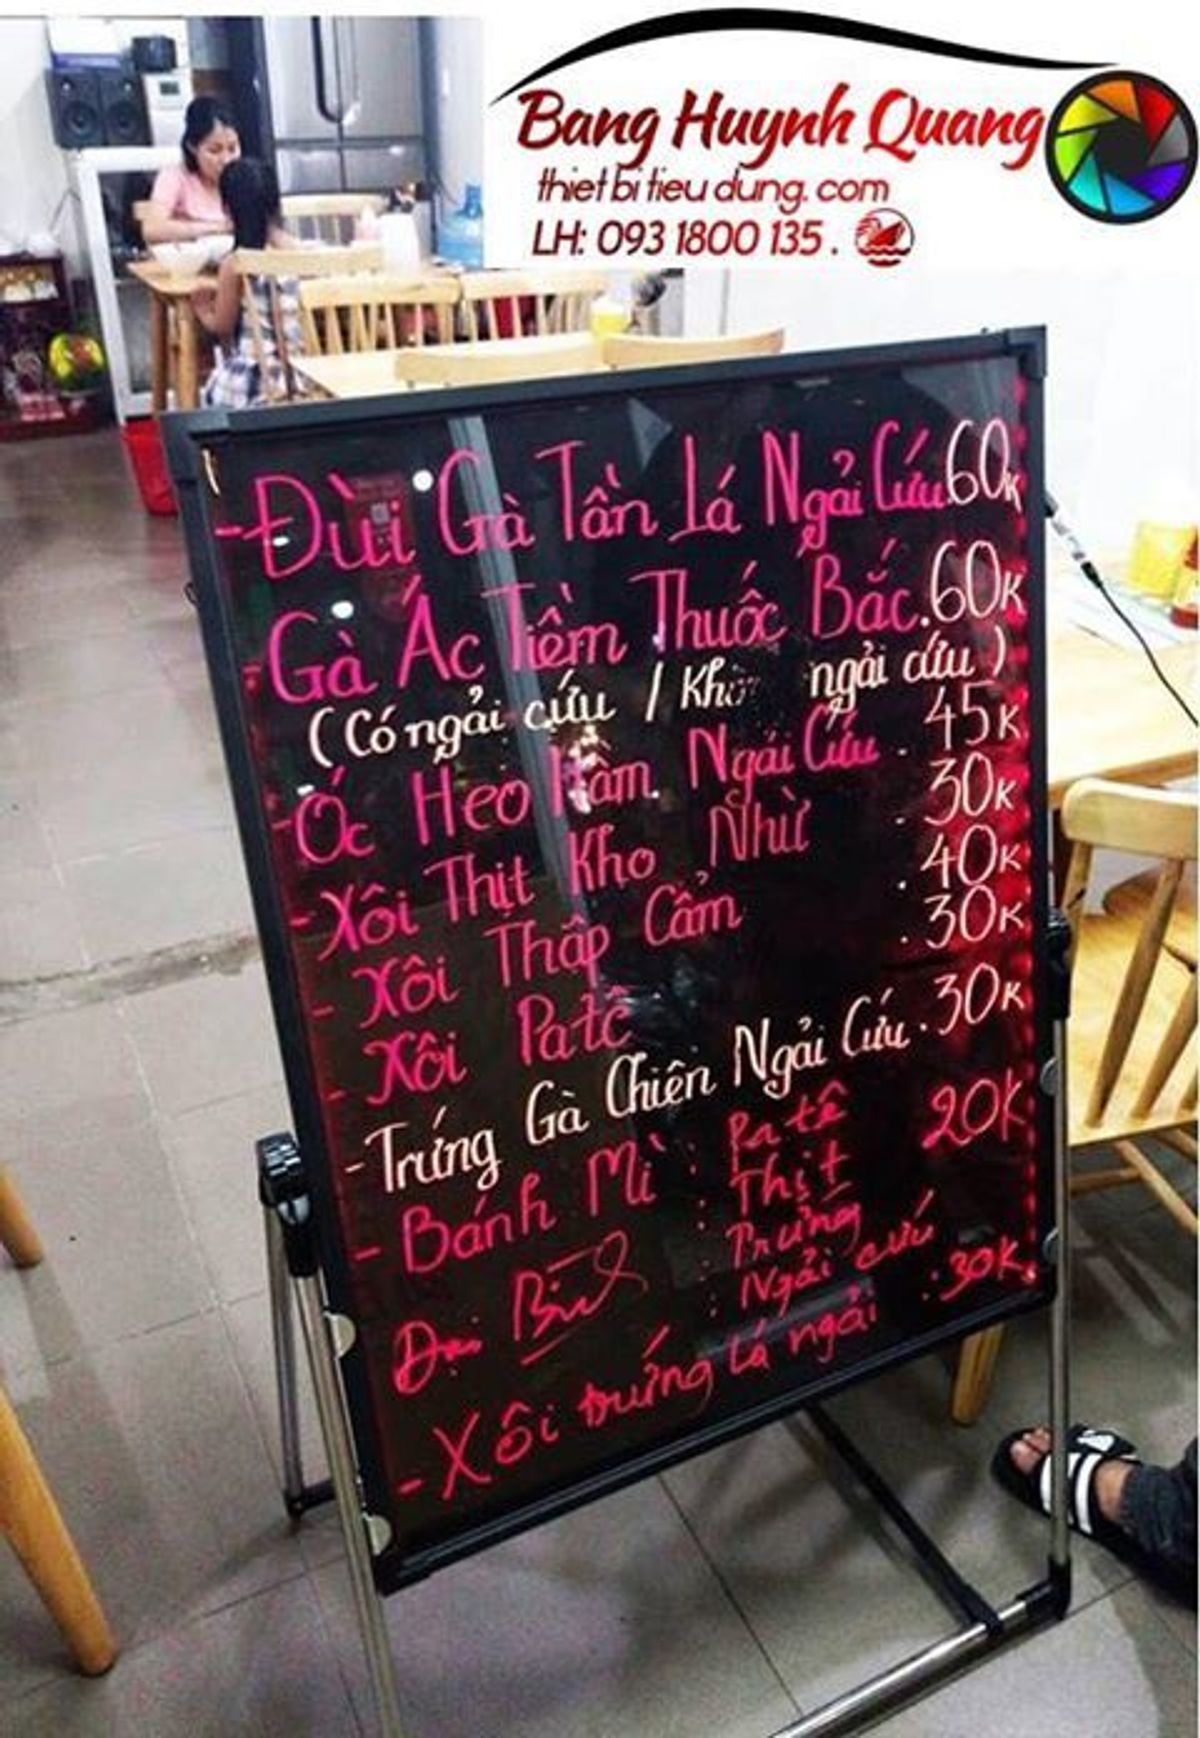 Bang Huynh Quang
thietbitieudung.com
LH: 093 1800 135 .
- Đùi Gà Tần Lá Ngải Cứu 60K
- Gà Ác Tiềm Thuốc Bắc. 60K
( Có ngải cứu / ngải cứu )
- Óc Heo Hầm Ngải Cứu . 45K
- Xôi Thịt Kho Nhừ . 30K
- Xôi Thập Cẩm . 40K
- Xôi Patê . 30K
- Trứng Gà Chiên Ngải Cứu . 30K
- Bánh Mì : Patê 20K
Đại : Thịt
: Trứng
: Ngải cứu
- Xôi trứng lá ngải : 30K